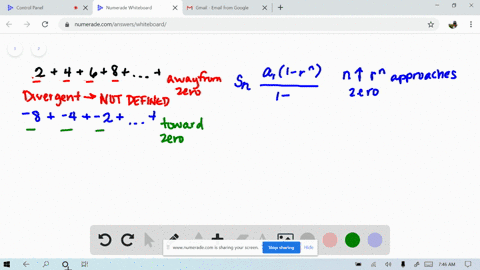 Control Panel
Numerade Whiteboard
Gmail - Email from Google
numerade.com/answers/whiteboard/
2 + 4 + 6 + 8 + ... + away from zero
Divergent → NOT DEFINED
-8 + -4 + -2 + ... + toward zero
Sn a1(1-r^n)
1-
n↑ r^n approaches zero
www.numerade.com is sharing your screen.
Stop sharing
Hide
7:46 AM